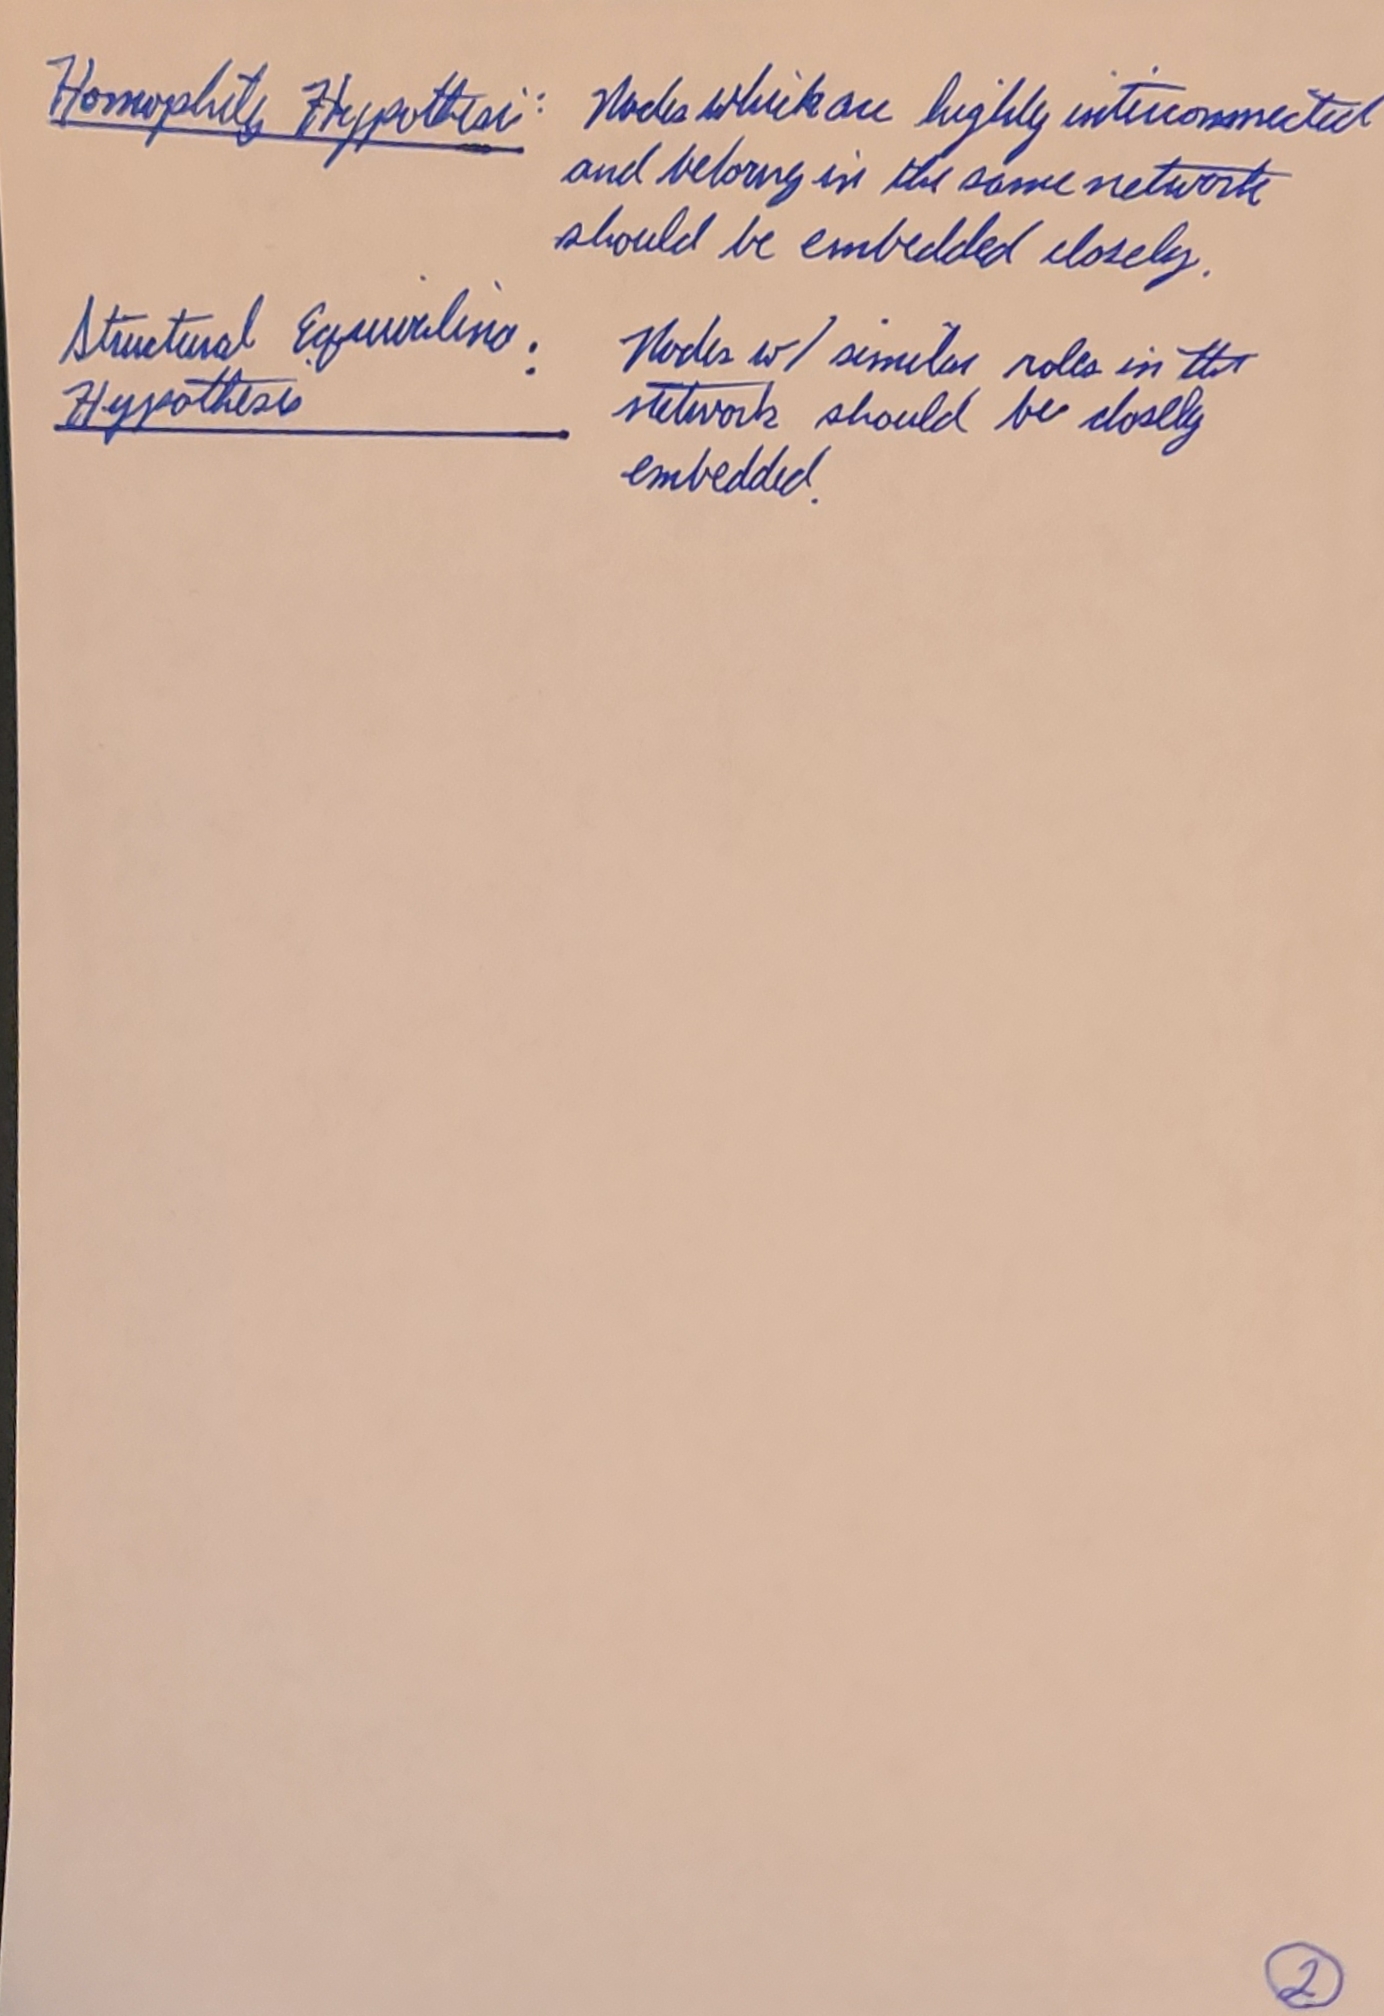 Homophily Hypothesis: Nodes which are highly interconnected
and belong in the same network
should be embedded closely.
Structural Equivalence: Nodes w/ similar roles in the
Hypothesis network should be closely
embedded.
2